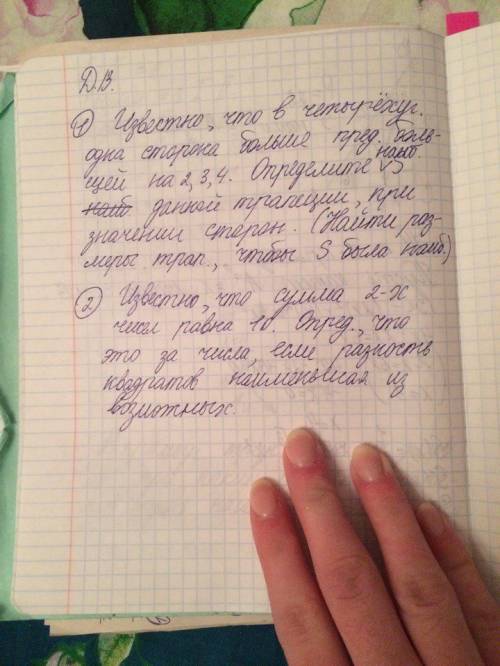 Д.В.
① Известно, что в четырёхуг.
одна сторона больше пред. боль-
щей на 2, 3, 4. Определите наиб S
данной трапеции, при
значении сторон. (Найти раз-
меры трап., чтобы S была наиб.)
② Известно, что сумма 2-х
чисел равна 10. Опред., что
это за числа, если разность
квадратов наименьшая из
возможных.